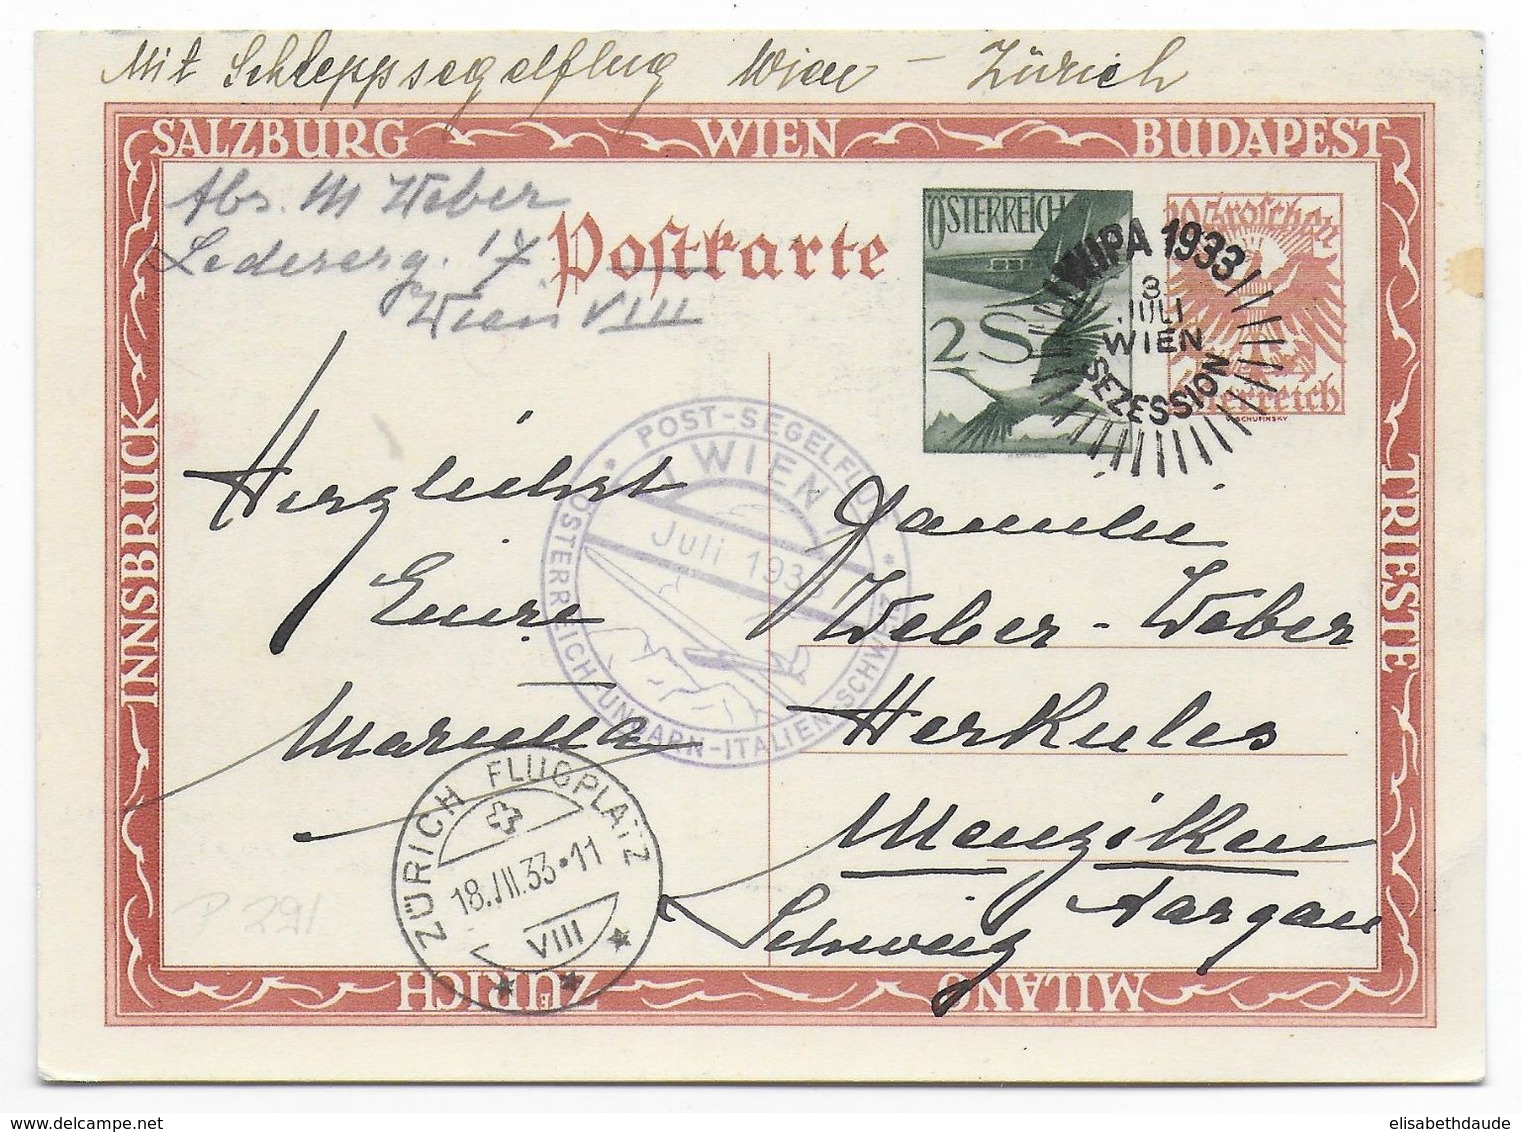 Mit Schleppsegelflug Wien – Zürich
SALZBURG WIEN BUDAPEST
INNSBRUCK
TRIESTE
ZÜRICH MILANO
Abs. M Weber
Lederer​g. 17
Wien VIII
Postkarte
ÖSTERREICH
2 S
20 Groschen
Österreich
SCHUFINSKY
WIPA 1933
3
JULI
WIEN
SEZESSION
* POST-SEGELFLUG *
ÖSTERREICH-UNGARN-ITALIEN-SCHWEIZ
WIEN
Juli 1933
Herzlichst
Eure
Familie
Weber-Weber
Herkules
Menziken
Aargau
Schweiz
ZÜRICH FLUGPLATZ
18.VII.33·11
VIII
P 291
elisabethdaude